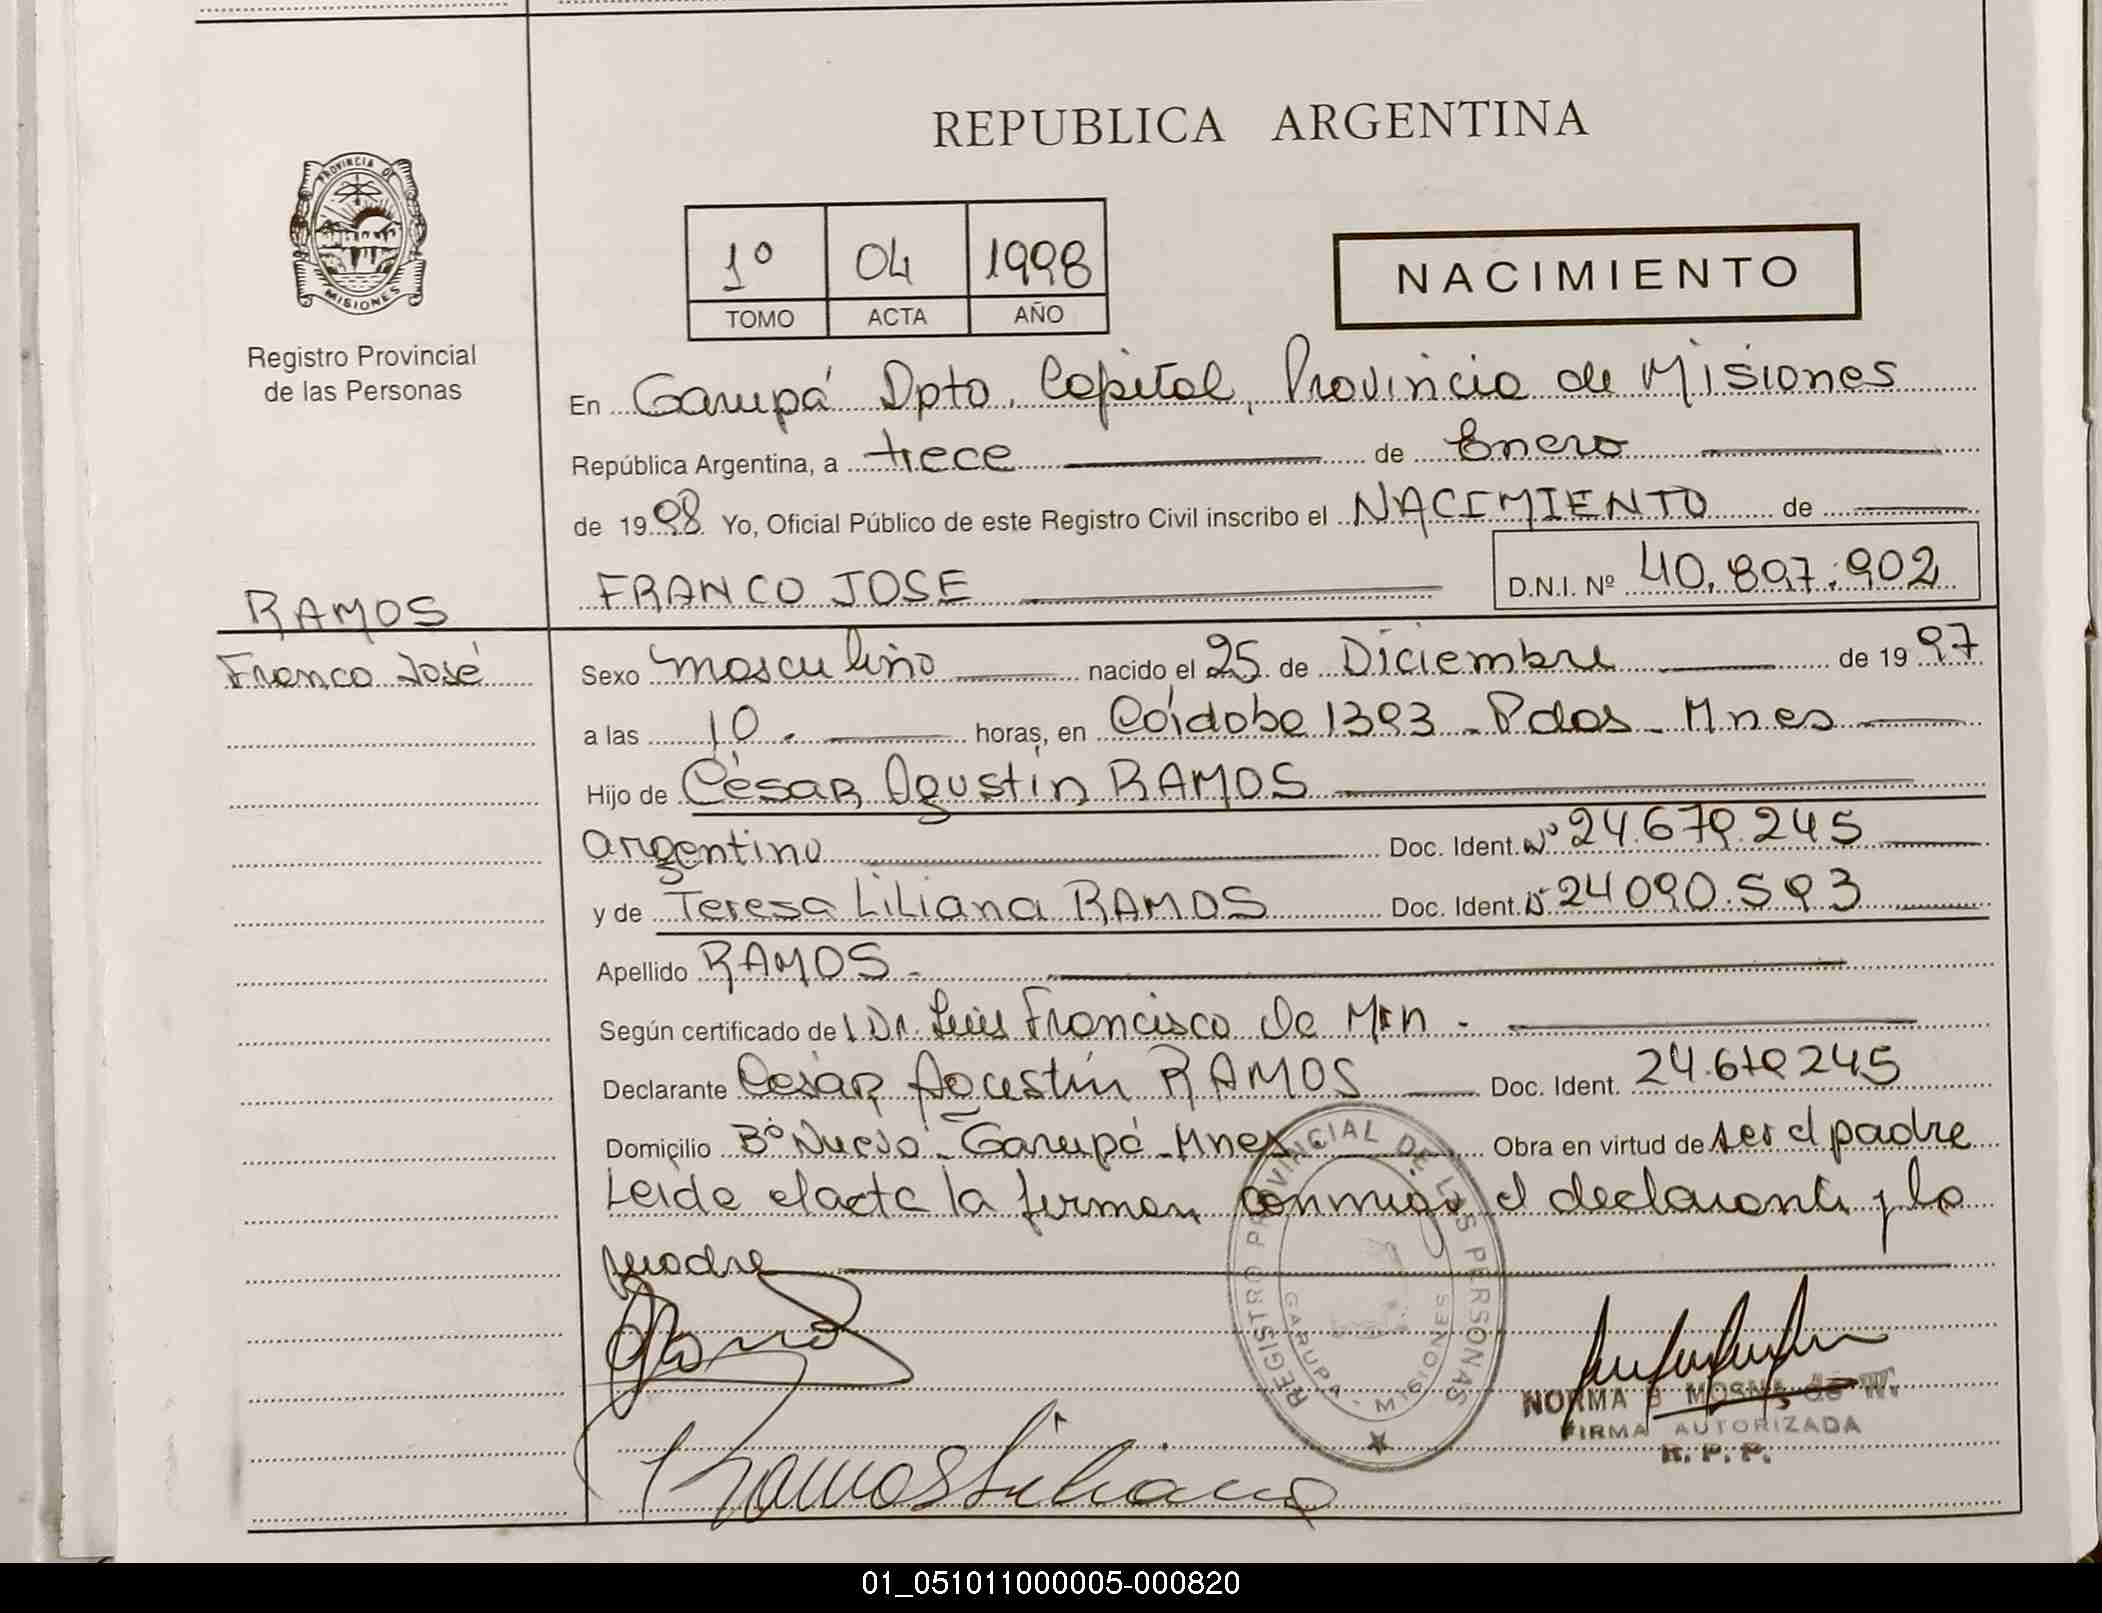 REPUBLICA ARGENTINA
PROVINCIA DE MISIONES
1º 04 1998
TOMO ACTA AÑO
NACIMIENTO
Registro Provincial
de las Personas
En Garupá Dpto. Capital, Provincia de Misiones
República Argentina, a trece de Enero
de 1998 Yo, Oficial Público de este Registro Civil inscribo el NACIMIENTO de
FRANCO JOSE D.N.I. Nº 40.897.902
RAMOS
Franco José
Sexo masculino nacido el 25 de Diciembre de 1997
a las 10. horas, en Córdoba 1393 - Pdas - Mnes
Hijo de César Agustín RAMOS
argentino Doc. Ident. Nº 24.679.245
y de Teresa Liliana RAMOS Doc. Ident. Nº 24090.593
Apellido RAMOS.
Según certificado de Dr. Luis Francisco De
Declarante César Agustín RAMOS Doc. Ident. 24.679245
Domicilio Bº Nuevo - Garupá - Mnes. Obra en virtud de ser el padre
Leída el acta la firman conmigo el declarante y la
madre
REGISTRO PROVINCIAL DE LAS PERSONAS
GARUPA - MISIONES
NORMA B MOSNA de W.
FIRMA AUTORIZADA
R. P. P.
Ramos Liliana
01_051011000005-000820